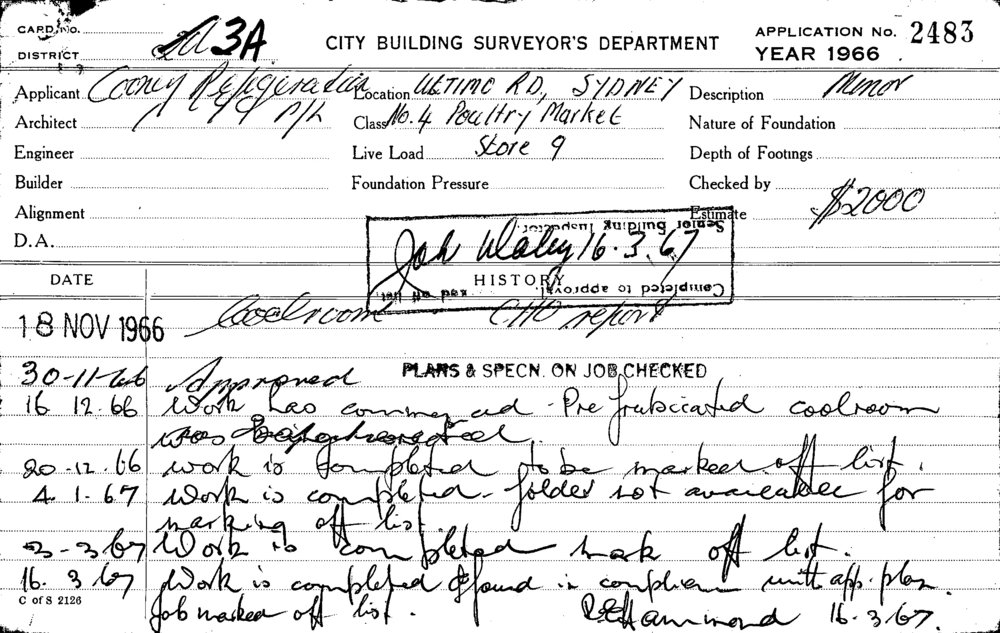 CARD No.
DISTRICT 3A
CITY BUILDING SURVEYOR'S DEPARTMENT
APPLICATION No. 2483
YEAR 1966
Applicant Cooney Refrigeration P/L
Location ULTIMO RD, SYDNEY
Description Minor
Architect
Class No. 4 Poultry Market
Nature of Foundation
Engineer
Live Load Store 9
Depth of Footings
Builder
Foundation Pressure
Checked by
Alignment
Estimate $2000
D.A.
Senior Building Inspector.
16.3.67
Completed to approval, and off list.
DATE
HISTORY
18 NOV 1966 Coolroom CHO report
PLANS & SPECN. ON JOB CHECKED
30-11-66 Approved
16 12.66 Work has commenced - Prefrabricated coolroom
was being erected.
20-12.66 work is completed to be marked off list.
4.1.67 Work is completed - folder not available for
marking off list.
3-3-67 Work is completed mark off list.
16.3.67 Work is completed & found in complian with app. plan
Job marked off list. Hammond 16-3.67.
C of S 2126